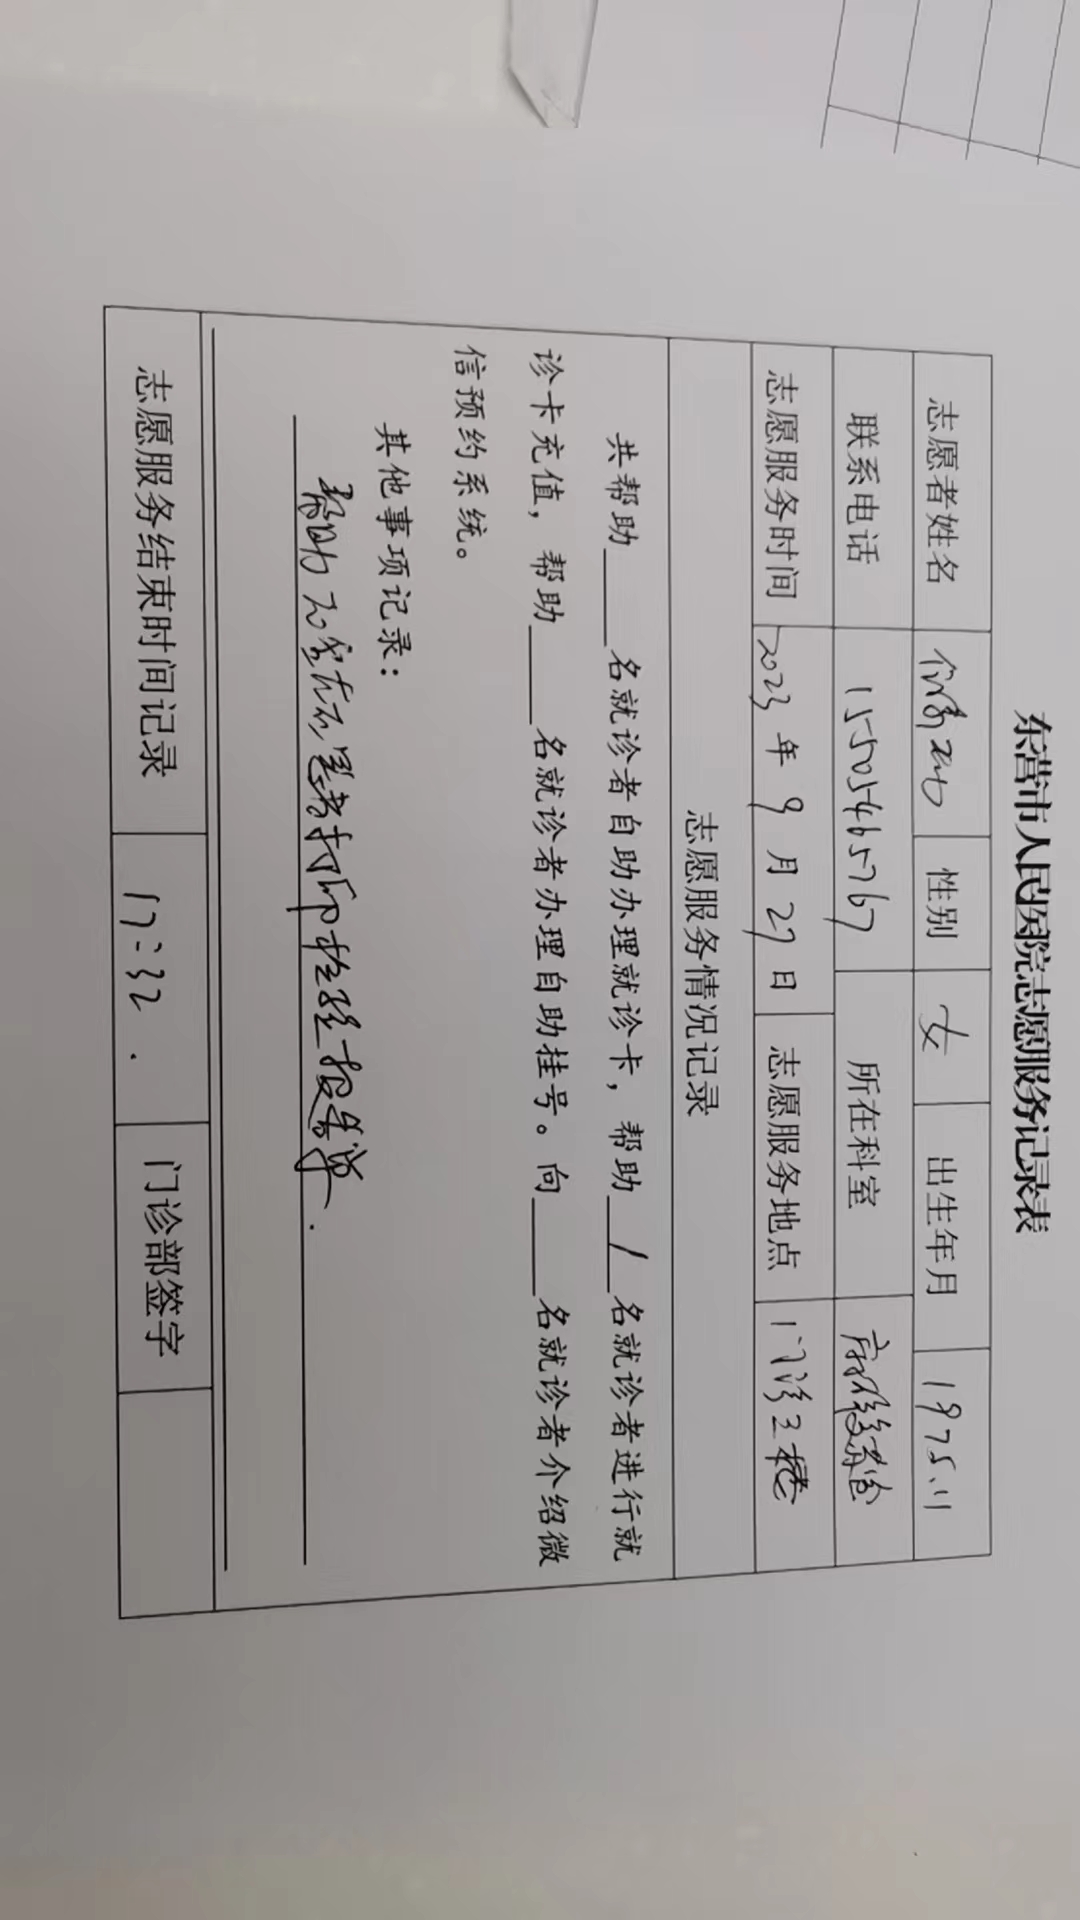 东营市人民医院志愿服务记录表
志愿者姓名 性别 女 出生年月 1975.11
联系电话 15505465767 所在科室
志愿服务时间 2023年9月27日 志愿服务地点 门诊三楼
志愿服务情况记录
共帮助____名就诊者自助办理就诊卡，帮助__1__名就诊者进行就
诊卡充值，帮助____名就诊者办理自助挂号。向____名就诊者介绍微
信预约系统。
其他事项记录：
帮助 患者打印检验报告单.
志愿服务结束时间记录 17:32. 门诊部签字